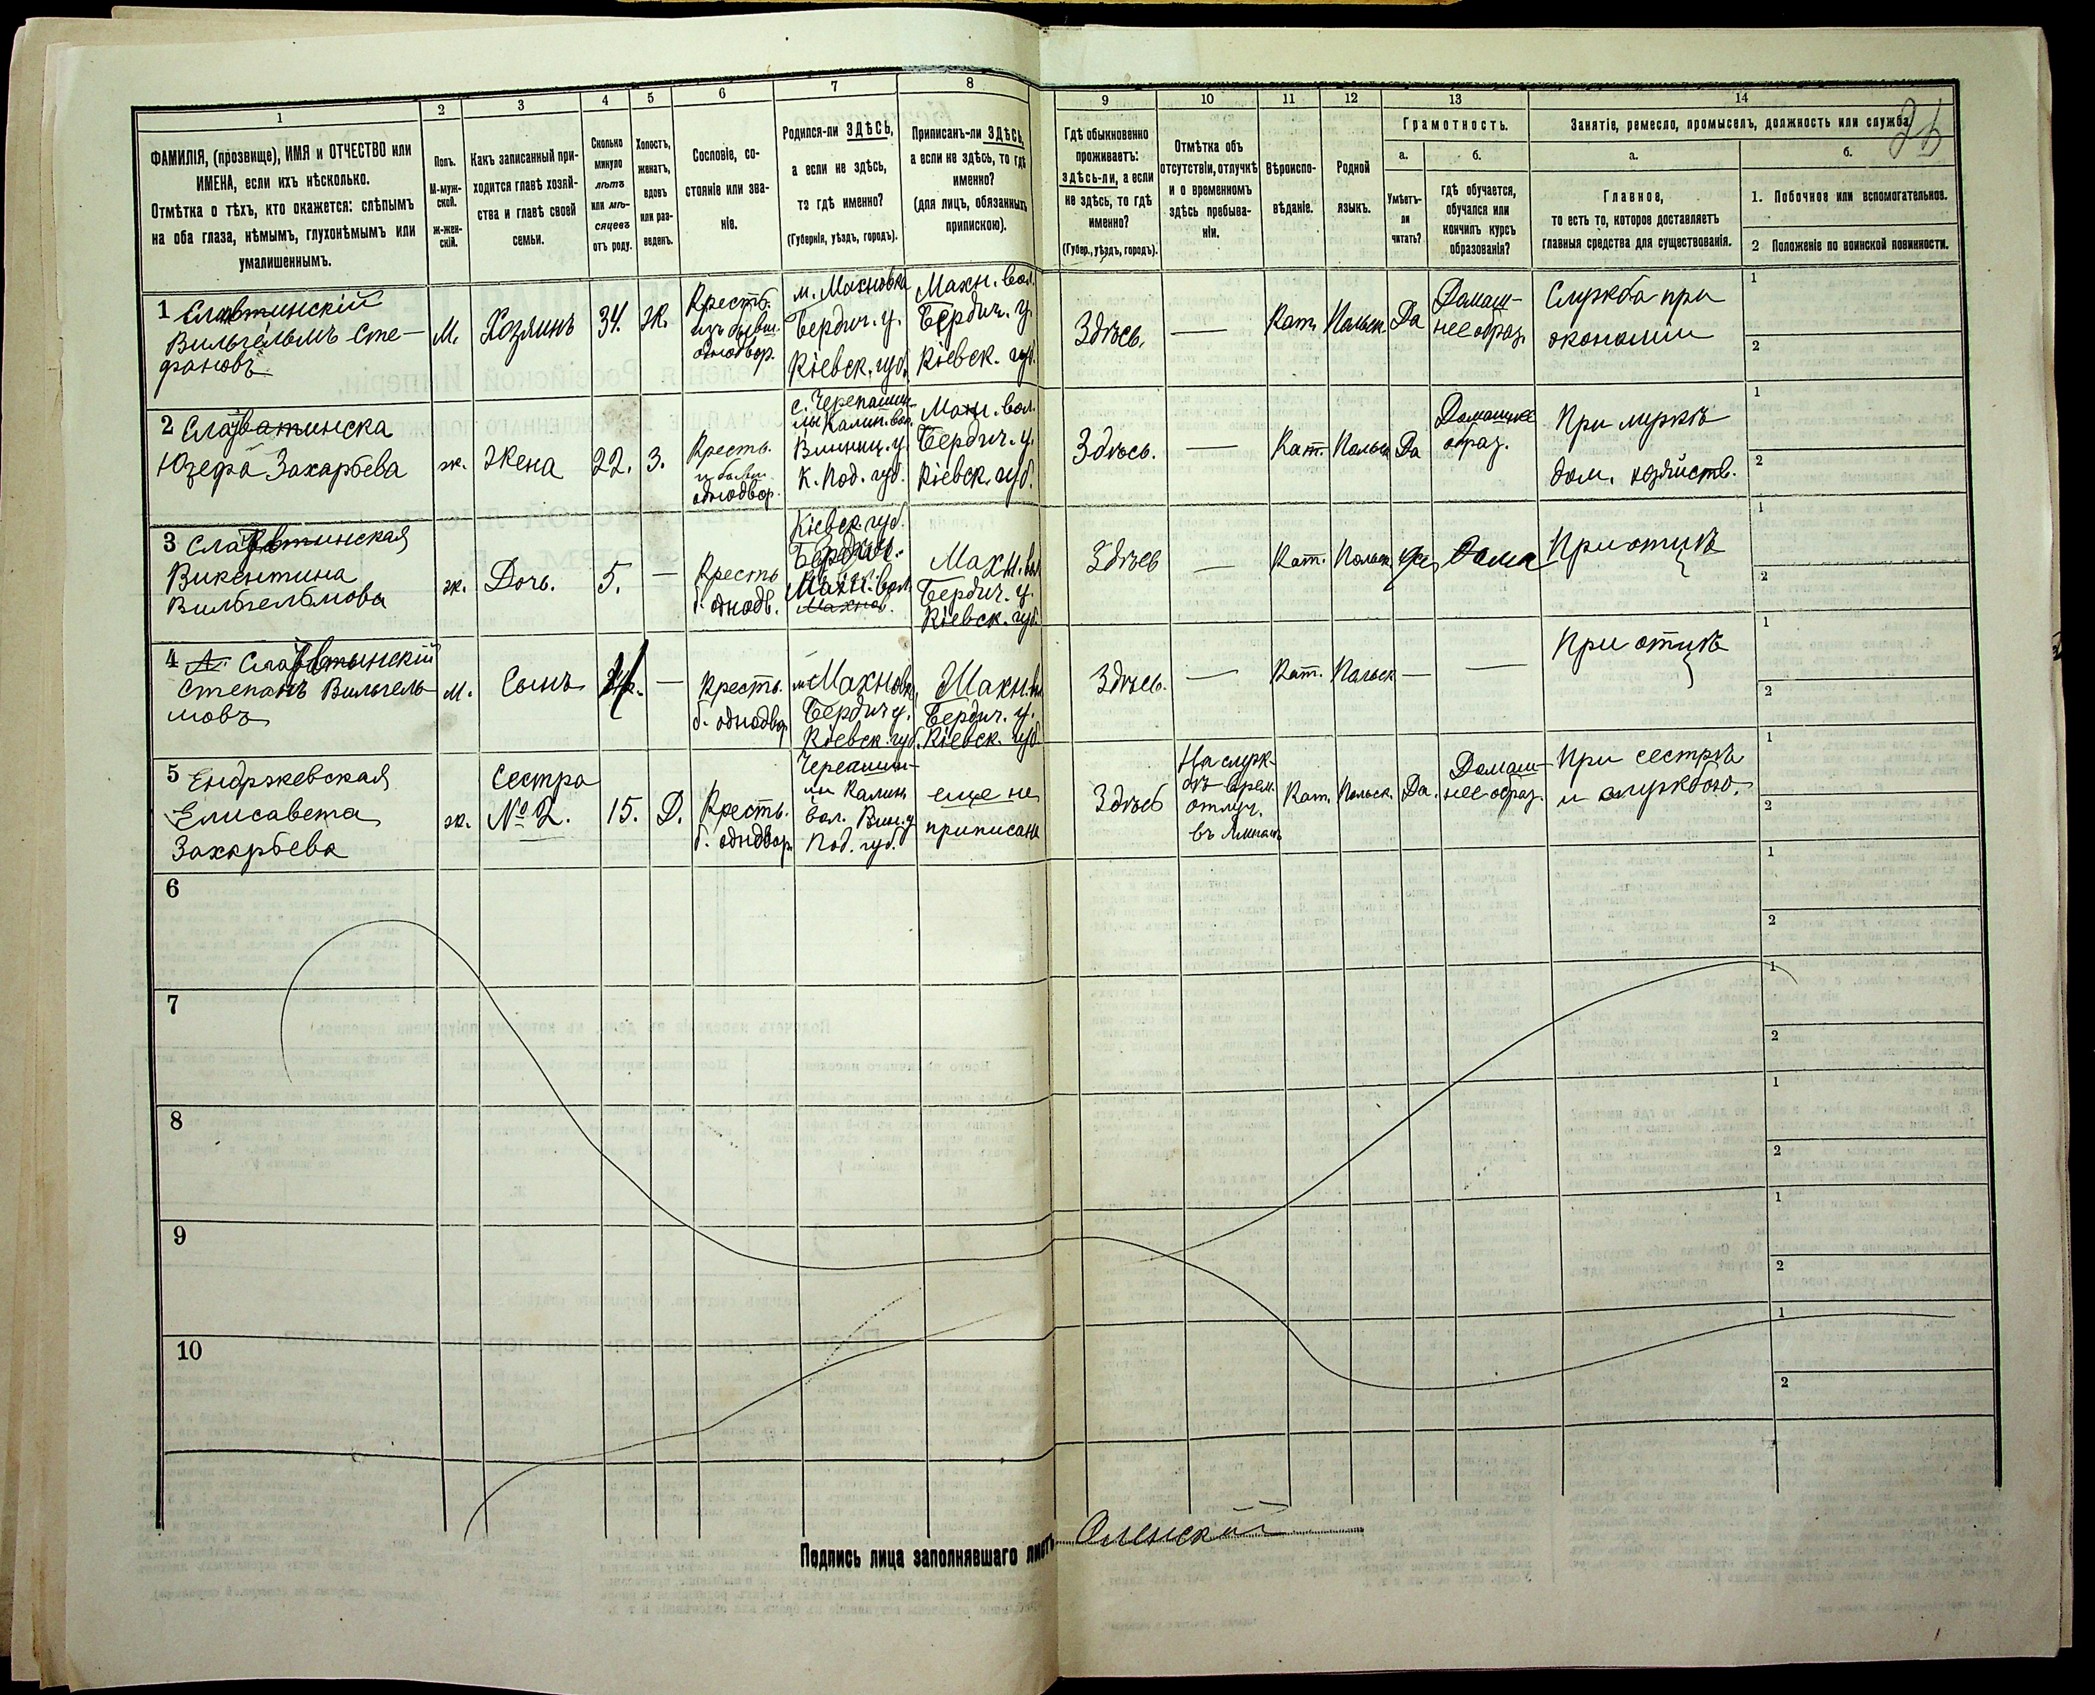 1
2
3
4
5
6
7
8
9
10
11
12
13
14
ФАМИЛІЯ, (прозвище), ИМЯ и ОТЧЕСТВО или
ИМЕНА, если ихъ нѣсколько.
Отмѣтка о тѣхъ, кто окажется: слѣпымъ
на оба глаза, нѣмымъ, глухонѣмымъ или
умалишеннымъ.
Полъ.
М-муж-
ской.
Ж-жен-
скій.
Какъ записанный при-
ходится главѣ хозяй-
ства и главѣ своей
семьи.
Сколько
минуло
лѣтъ
или мѣ-
сяцевъ
отъ роду.
Холостъ,
женатъ,
вдовъ
или раз-
веденъ.
Сословіе, со-
стояніе или зва-
ніе.
Родился-ли ЗДѢСЬ,
а если не здѣсь,
то гдѣ именно?
(Губернія, уѣздъ, городъ).
Приписанъ-ли ЗДѢСЬ,
а если не здѣсь, то гдѣ
именно?
(для лицъ, обязанныхъ
припискою).
Гдѣ обыкновенно
проживаетъ:
здѣсь-ли, а если
не здѣсь, то гдѣ
именно?
(Губер., уѣздъ, городъ).
Отмѣтка объ
отсутствіи, отлучкѣ
и о временномъ
здѣсь пребыва-
ніи.
Вѣроиспо-
вѣданіе.
Родной
языкъ.
Грамотность.
а.
б.
Умѣетъ-
ли
читать?
гдѣ обучается,
обучался или
кончилъ курсъ
образованія?
Занятіе, ремесло, промыселъ, должность или служба.
а.
б.
Главное,
то есть то, которое доставляетъ
главныя средства для существованія.
1. Побочное или вспомогательное.
2 Положеніе по воинской повинности.
1
Вильгельмъ Сте-
фановъ
М.
Хозяинъ
34.
Ж.
Крестьн.
изъ бывш.
однодвор.
м. Махновка
Бердич. у.
Кіевск. губ.
Махн. вол.
Бердич. у.
Кіевск. губ.
Здѣсь.
—
Кат.
Польск.
Да
Домаш-
нее образ.
Служба при
экономіи
1
2
2
Юзефа Захарьева
ж.
Жена
22.
З.
Кресть.
однодвор.
с. Черепашин-
цы Калин. вол.
Винниц. у.
К. Под. губ.
Махн. вол.
Бердич. у.
Кіевск. губ.
Здѣсь.
—
Кат.
Польск
Да
Домашнее
образ.
При мужѣ
дом. хозяйств.
1
2
3
Викентина
Вильгельмова
ж.
Дочь.
5.
—
Кресть
б. однодв.
Кіевск. губ.
Бердич.
Махн. вол.
Махнов.
Махн. вол
Бердич. у.
Кіевск. губ.
Здѣсь
—
Кат.
Польск.
Дома
При отцѣ
1
2
4
Степанъ Вильгель
мовъ
м.
Сынъ
—
Кресть.
б. однодвор
м. Махновк.
Бердич у.
Кіевск. губ.
Махн. вол
Бердич. у.
Кіевск. губ.
Здѣсь.
—
Кат.
Польск
—
—
При отцѣ
1
2
5
Ендржевская
Елисавета
Захарьева
ж.
Сестра
№ 2.
15.
Д.
Кресть.
б. однодвор.
Черепашин-
цы Калин.
вол. Вин. у
Под. губ.
еще не
приписана
Здѣсь
На служ-
бѣ врем.
отлуч.
Кат.
Польск.
Да.
Домаш-
нее образ.
При сестрѣ
и службою.
1
2
6
1
2
7
1
2
8
1
2
9
1
2
10
1
2
Подпись лица заполнявшаго листъ